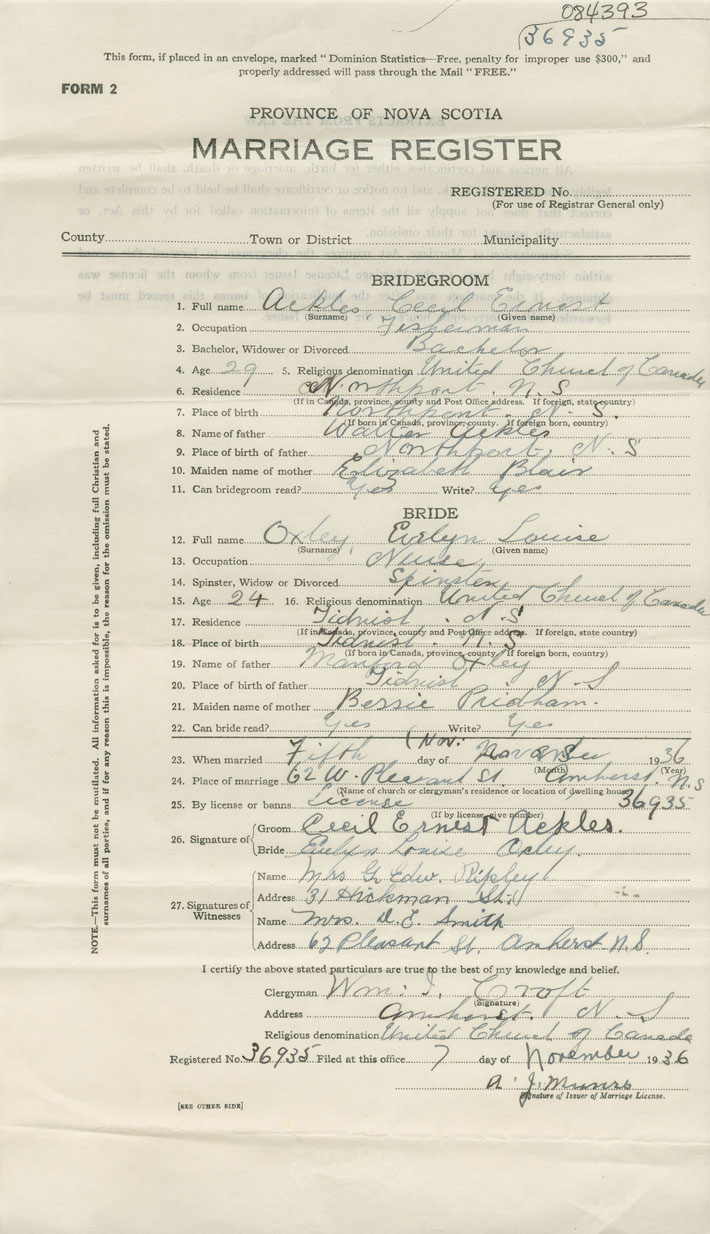 084393
36935
This form, if placed in an envelope, marked "Dominion Statistics—Free, penalty for improper use $300," and
properly addressed will pass through the Mail "FREE."
FORM 2
PROVINCE OF NOVA SCOTIA
MARRIAGE REGISTER
REGISTERED No.
(For use of Registrar General only)
County Town or District Municipality
BRIDEGROOM
1. Full name Ackles, Cecil Ernest
(Surname) (Given name)
2. Occupation Fisherman
3. Bachelor, Widower or Divorced Bachelor
4. Age 29 5. Religious denomination United Church of Canada
6. Residence Northport. N.S
(If in Canada, province, county and Post Office address. If foreign, state country)
7. Place of birth Northport. N.S.
(If born in Canada, province, county. If foreign born, country)
8. Name of father Walter Ackles
9. Place of birth of father Northport. N.S
10. Maiden name of mother Elizabeth Blair
11. Can bridegroom read? Yes Write? Yes
BRIDE
12. Full name Oxley, Evelyn Louise
(Surname) (Given name)
13. Occupation Nurse
14. Spinster, Widow or Divorced Spinster
15. Age 24 16. Religious denomination United Church of Canada
17. Residence Tidnish. N.S
(If in Canada, province, county and Post Office address. If foreign, state country)
18. Place of birth Tidnish. N.S
(If born in Canada, province, county. If foreign born, country)
19. Name of father Manford Oxley
20. Place of birth of father Tidnish N.S
21. Maiden name of mother Bessie Pridham.
22. Can bride read? Yes Write? Yes
(Nov:
23. When married Fifth day of November 1936
(Month) (Year)
24. Place of marriage 62 W. Pleasant St. Amherst. N.S
(Name of church or clergyman's residence or location of dwelling house)
25. By license or banns License 36935
(If by license, give number)
26. Signature of
Groom Cecil Ernest Ackles.
Bride Evelyn Louise Oxley.
27. Signatures of Witnesses
Name Mrs G. Edw. Ripley
Address 31 Hickman St.
Name Mrs. D. E. Smith
Address 62 Pleasant St. Amherst N.S.
I certify the above stated particulars are true to the best of my knowledge and belief.
Clergyman Wm. I. Croft
(Signature)
Address Amherst. N.S
Religious denomination United Church of Canada
Registered No. 36935 Filed at this office 7 day of November 1936
A. J. Munro
Signature of Issuer of Marriage License.
[SEE OTHER SIDE]
NOTE.—This form must not be mutilated. All information asked for is to be given, including full Christian and
surnames of all parties, and if for any reason this is impossible, the reason for the omission must be stated.